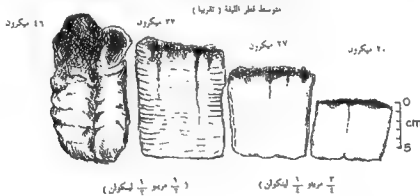 متوسط قطر الليفة ( تقريبا )
٤٦ ميكرون
٣٣ ميكرون
٢٧ ميكرون
٢٠ ميكرون
0
cm
5
( ١/٢ مرينو ١/٢ لينكولن )
٣/٤ مرينو ١/٤ لينكولن )